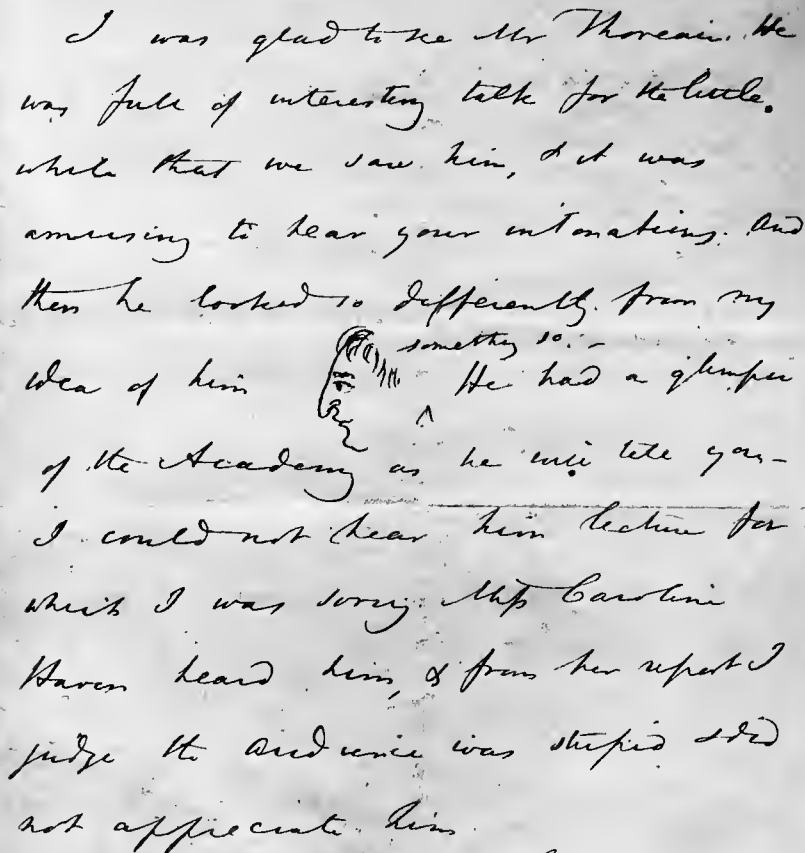 I was glad to see Mr Thoreau. He
was full of interesting talk for the little
while that we saw him, & it was
amusing to hear your intonations. And
then he looked so differently from my
something so. -
idea of him He had a glimpse
of the Academy as he will tell you -
I could not hear him lecture for
which I was sorry. Miss Caroline
Haven heard him, & from her report I
judge the audience was stupid & did
not appreciate him.